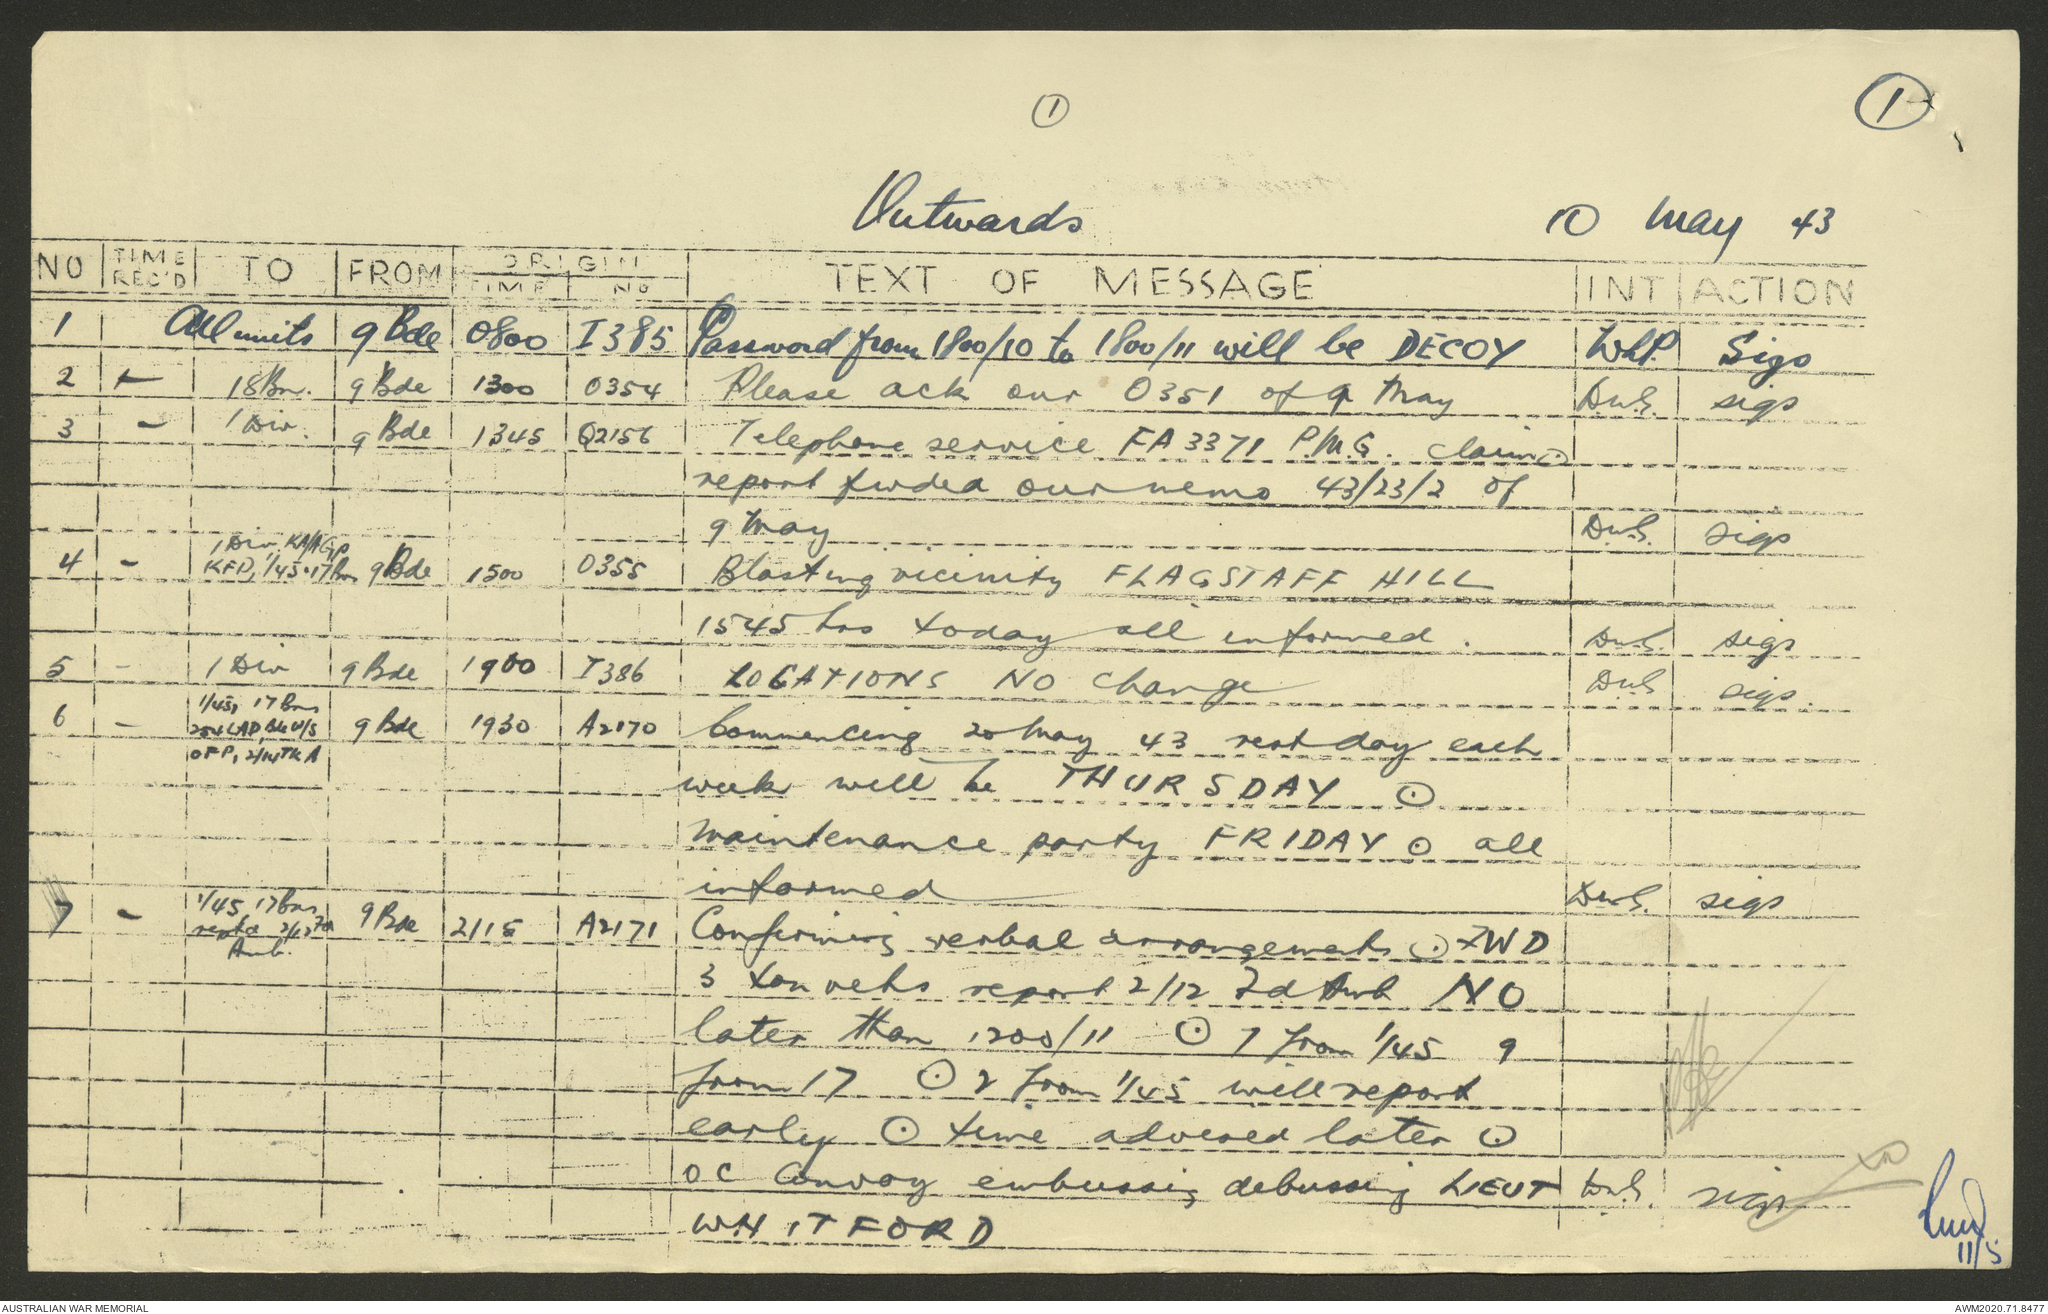 1
1
Outwards 10 May 43
NO TIME REC'D TO FROM ORIGIN TIME No TEXT OF MESSAGE INT ACTION
1 All units 9 Bde 0800 I385 Password from 1800/10 to 1800/11 will be DECOY WLP. Sigs
2 - 18 Bn. 9 Bde 1300 O354 Please ack our O351 of 9 May DwS. sigs
3 - 1 Div. 9 Bde 1345 Q2156 Telephone service FA3371 P.M.G. claim ⊙
report fwded our memo 43/23/2 of
9 May DwS. sigs
4 - 1 Div, KA/AGp
KFD, 1/45 · 17 Bns 9 Bde 1500 O355 Blasting vicinity FLAGSTAFF HILL
1545 hrs today all informed. DwS. sigs
5 - 1 Div 9 Bde 1900 I386 LOCATIONS NO change DwS sigs.
6 - 1/45, 17 Bns 9 Bde 1930 A2170 Commencing 20 May 43 rest day each
OFP, 2/14 Tk A
week will be THURSDAY ⊙
maintenance party FRIDAY ⊙ all
informed DwS. sigs
7 - 1/45 17 Bns
reptd 2/12 Fd
Amb. 9 Bde 2115 A2171 Confirming verbal arrangements ⊙ FWD
3 ton vehs report 2/12 Fd Amb NO
later than 1200/11 ⊙ 7 from 1/45 9
from 17 ⊙ 2 from 1/45 will report
early ⊙ time advised later ⊙
OC Convoy embussing debussing LIEUT DwS. sigs
WHITFORD
11/5
AUSTRALIAN WAR MEMORIAL AWM2020.71.8477